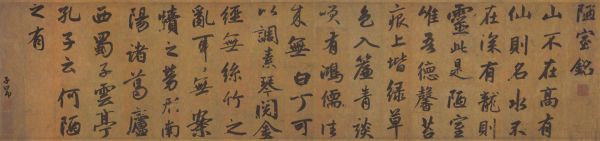 陋室銘
山不在高有
仙則名水不
在深有龍則
靈此是陋室
惟吾德馨苔
痕上堦綠草
色入簾青談
咲有鴻儒往
來無白丁可
以調素琴閱金
經無絲竹之
亂耳無案
牘之勞形南
陽諸葛廬
西蜀子雲亭
孔子云何陋
之有
子昂